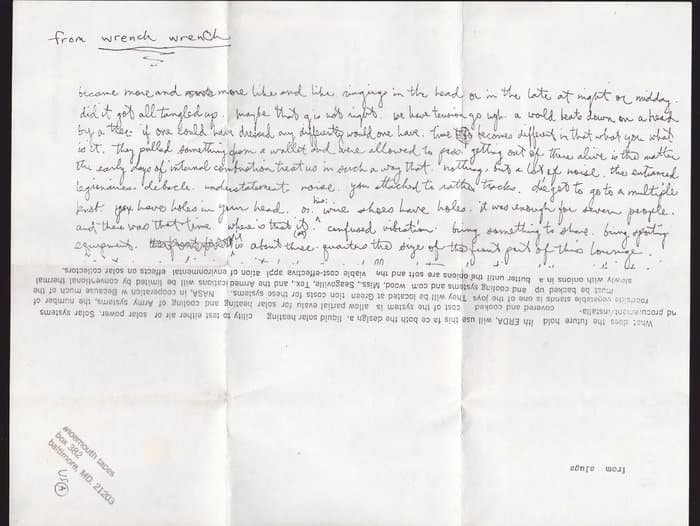 from wrench wrench
became more and more like and like singing in the head or in the late at night or midday.
did it get all tangled up. maybe that q is not right. we have tension go ugh. a world beats down on a beach
by a tree. if one could have dressed any differently would one have. time becomes different in that what you what
is it. they pulled something from a wallet and were allowed to pass. getting out of there alive is the matter
the early days of internal combustion treat us in such a way that. nothing, but a lot of noise. the entranced
legionnaires. debacle. understatement. noise. you attached to tracks. she got to go to a multiple
knot. you have holes in your head. or. his wine shoes have holes. it was enough for seven people.
and there was that time where is that it confused vibration. bring something to share. bring sporting
equipment. is about three-quarters the size of the front part of this lounge.
What does the future hold ith ERDA, will use this fa ce both the design a. liquid solar heating cility to test either air or solar power. Solar systems
nd procurement/installa- covered and cooked cost of the system is allow partial evalu for solar heating and cooling of Army systems, the number of
roadside vegetable stands is one of the joys They will be located at Green tion costs for these systems. NASA, in cooperation w Because much of the
must be backed up and cooling systems and com wood, Miss., Seagoville, Tex., and the Armed cations will be limited by conventional thermal
slowly with onions in a butter until the onions are soft and the viable cost-effective appl ation of environmental effects on solar collectors.
from aluga
widemouth tapes
box 382
baltimore, MD. 21203
USA